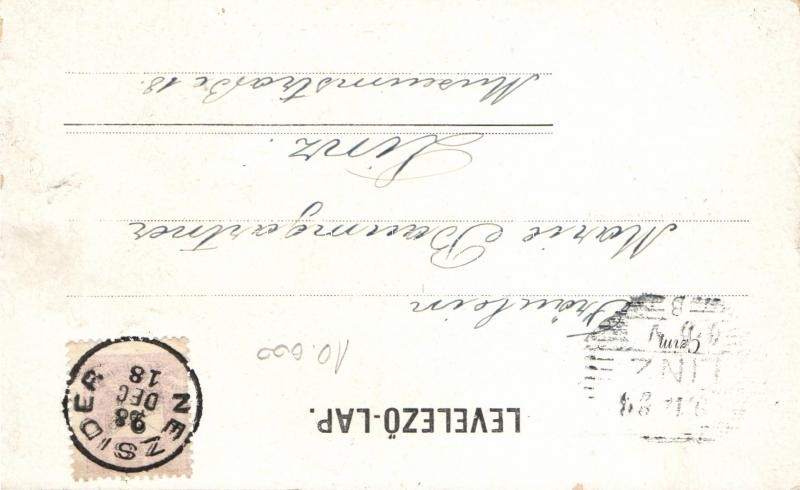 LEVELEZŐ-LAP.
NEZSIDER
98
DEC
18
LINZ
10.000
Fräulein
Marie Baumgartner
Linz.
Museumstraße 18.